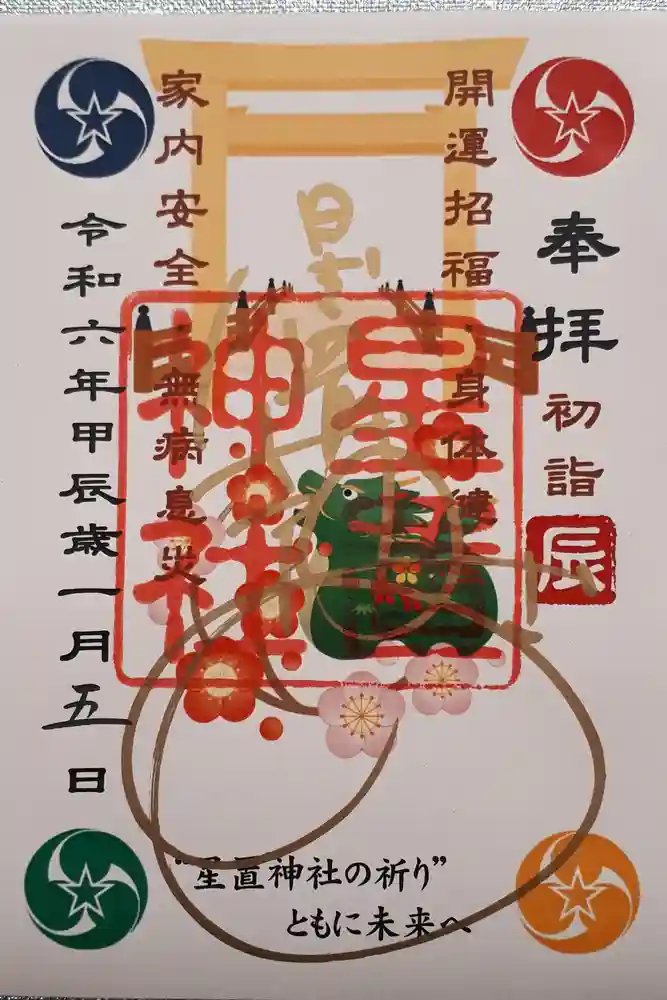 奉拝
初詣
辰
開運招福・身体健全
家内安全・無病息災
星置
神社
令和六年甲辰歳一月五日
“星置神社の祈り”
ともに未来へ